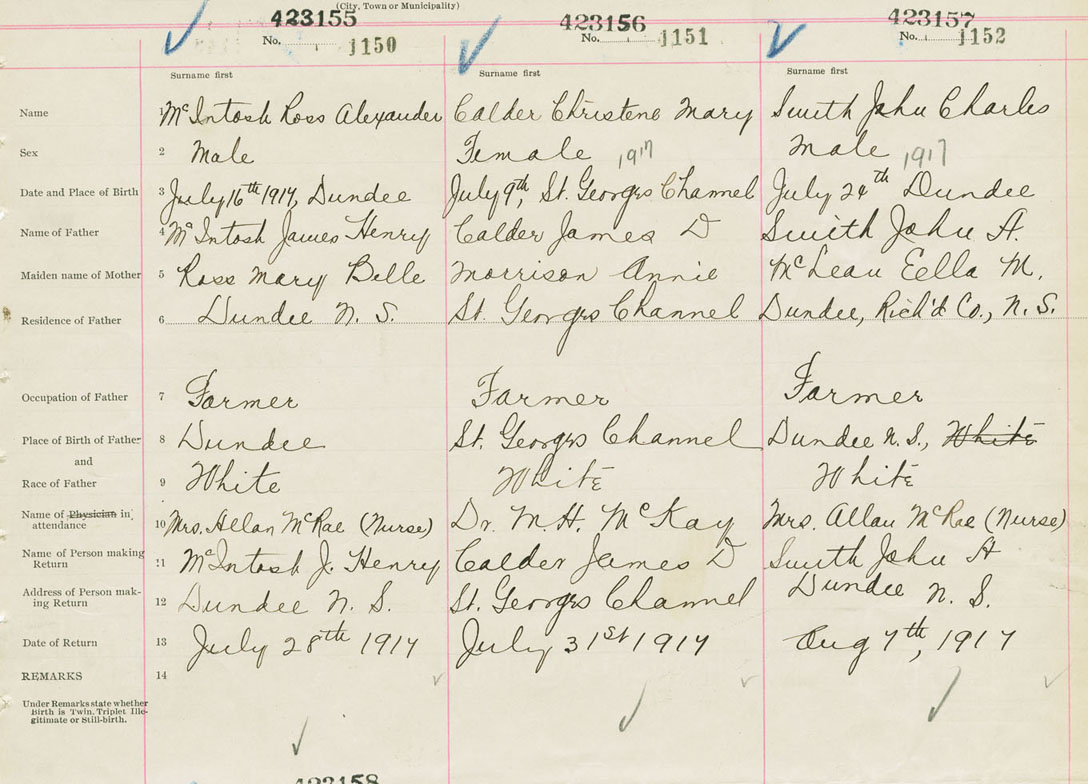 (City, Town or Municipality)
423155 423156 423157
No. 1150 No. 1151 No. 1152
Surname first Surname first Surname first
Name 1 McIntosh Ross Alexander Calder Christene Mary Smith John Charles
Sex 2 Male Female 1917 Male 1917
Date and Place of Birth 3 July 16th 1917, Dundee July 9th, St. Georges Channel July 24th Dundee
Name of Father 4 McIntosh James Henry Calder James D Smith John A.
Maiden name of Mother 5 Ross Mary Belle Morrison Annie McLean Eella M.
Residence of Father 6 Dundee N. S. St. Georges Channel Dundee, Rich'd Co., N. S.
Occupation of Father 7 Farmer Farmer Farmer
Place of Birth of Father 8 Dundee St. Georges Channel Dundee N. S., White
and
Race of Father 9 White White White
Name of Physician in attendance 10 Mrs. Allan McRae (Nurse) Dr. M. H. McKay Mrs. Allan McRae (Nurse)
Name of Person making Return 11 McIntosh J. Henry Calder James D Smith John A
Address of Person making Return 12 Dundee N. S. St. Georges Channel Dundee N. S.
Date of Return 13 July 28th 1917 July 31st 1917 Aug 7th, 1917
REMARKS 14
Under Remarks state whether
Birth is Twin, Triplet Ille-
gitimate or Still-birth.
423158